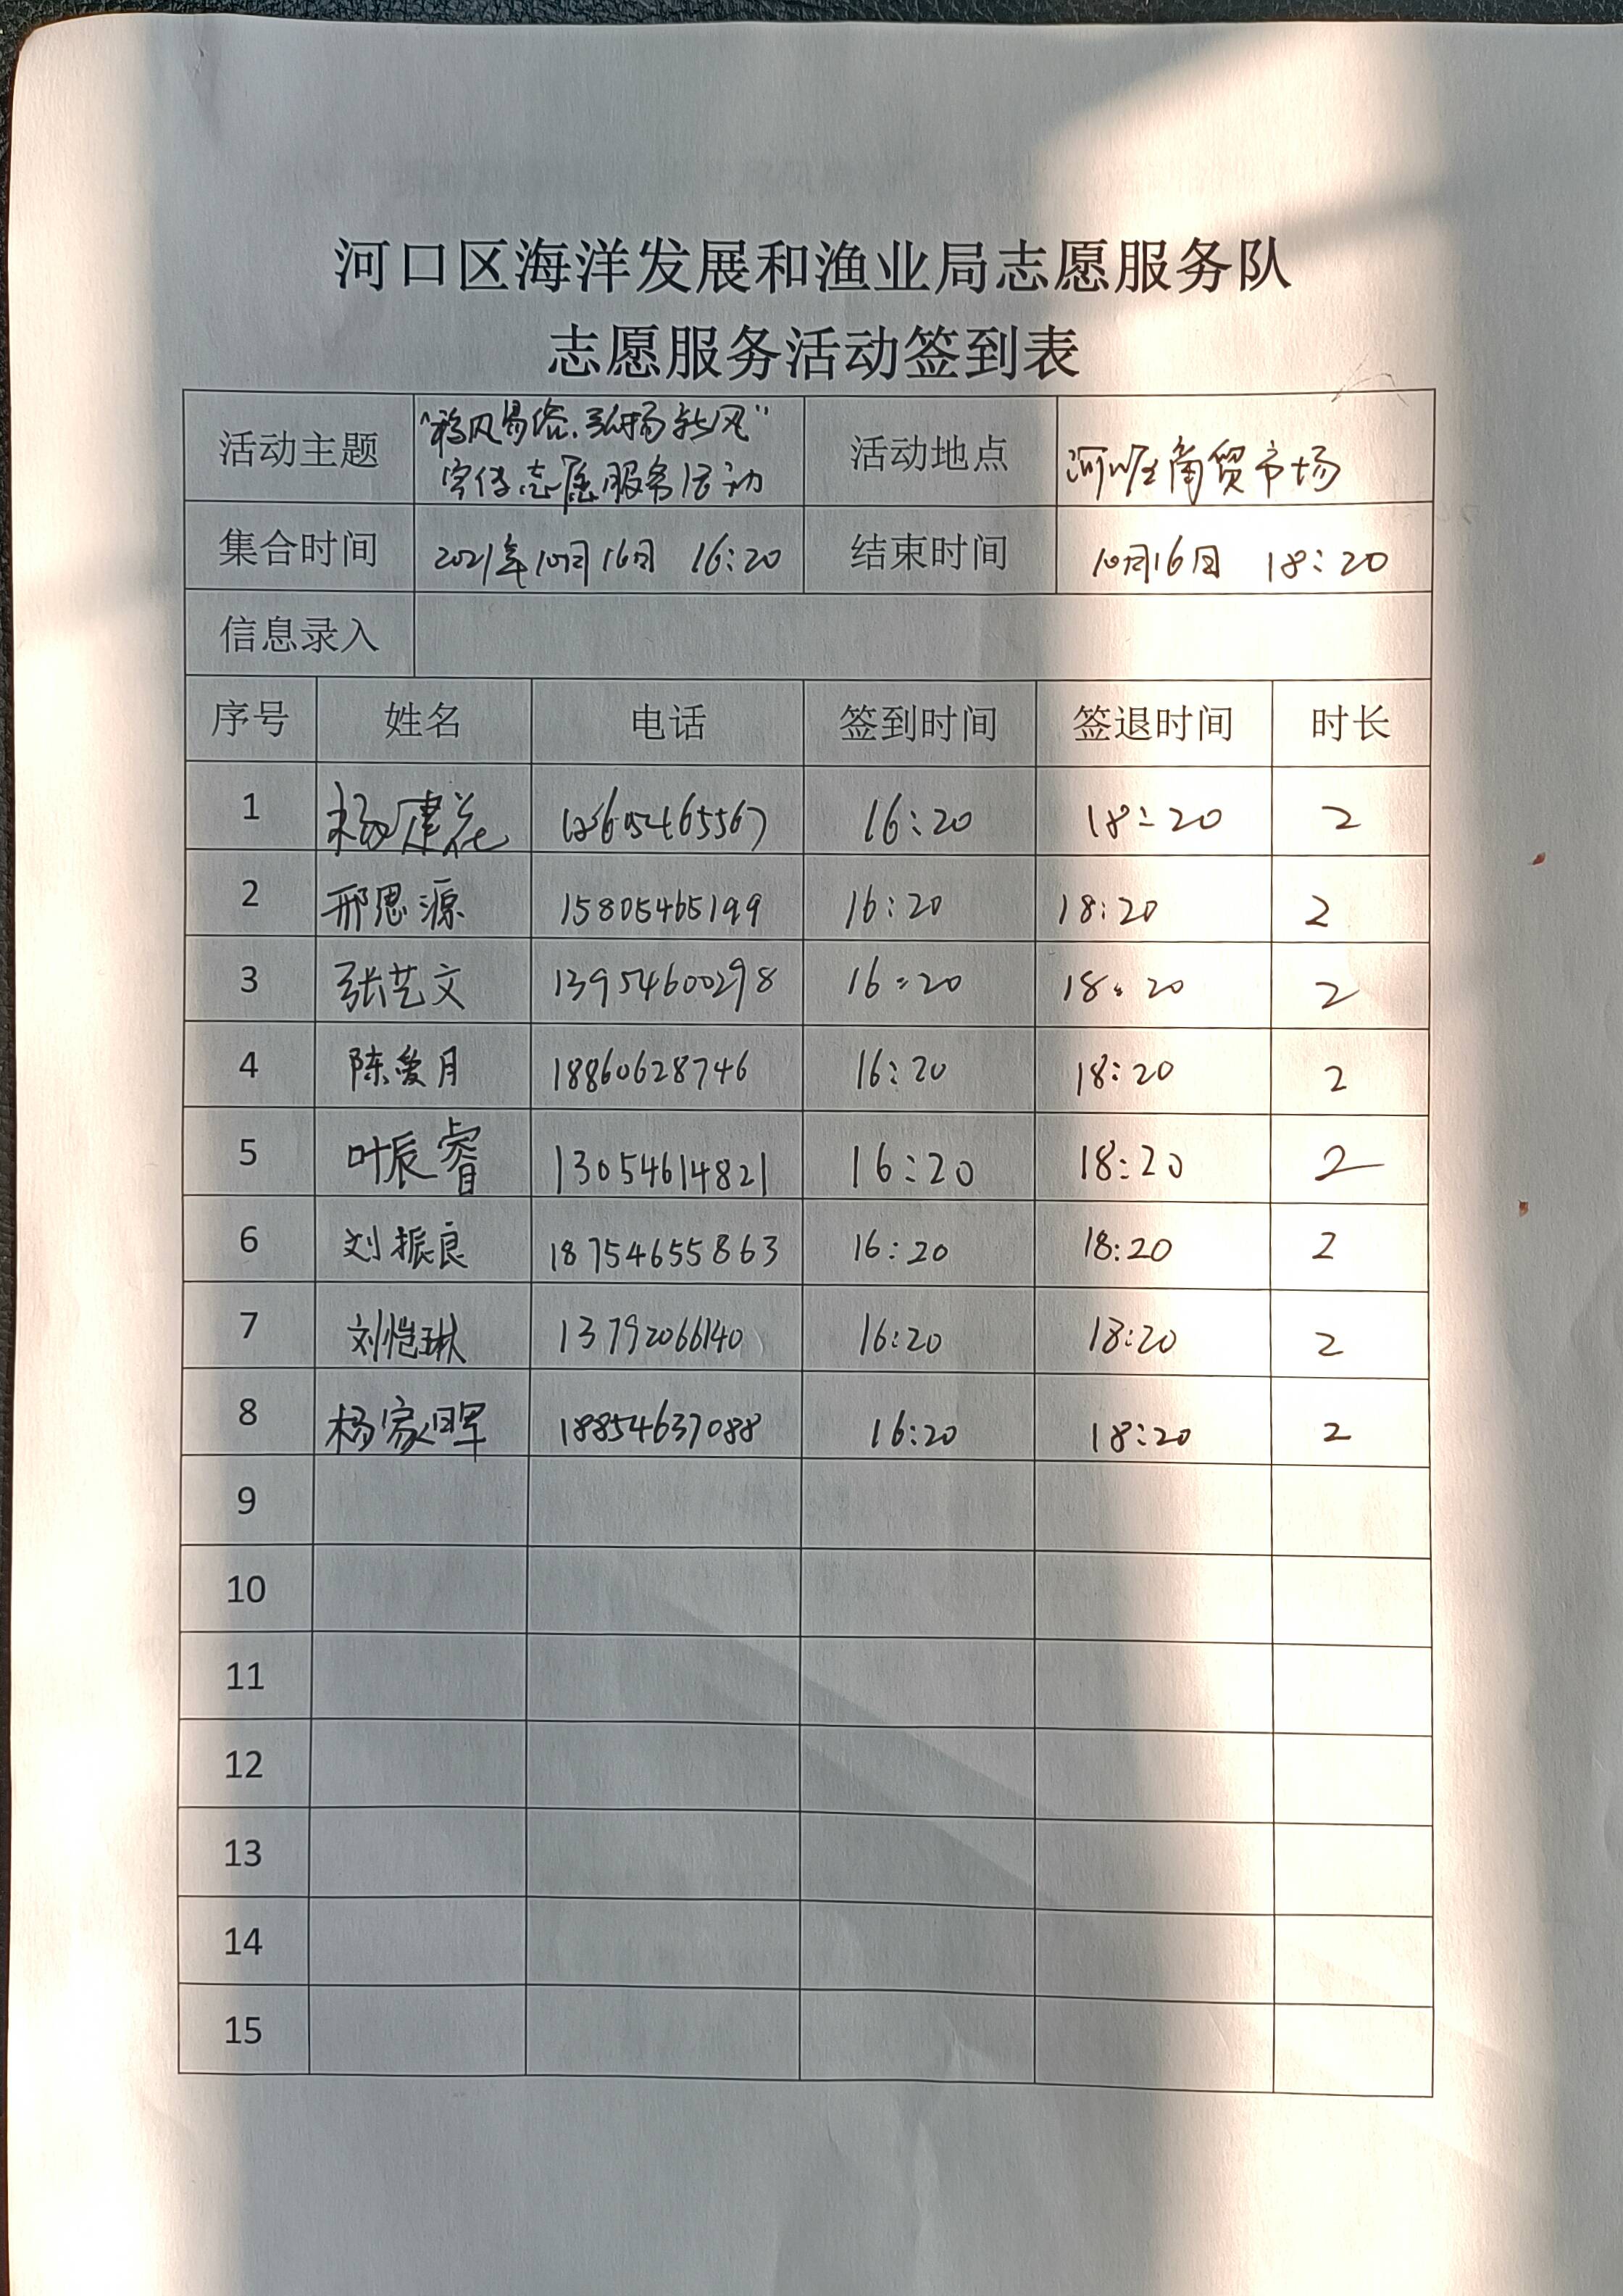 河口区海洋发展和渔业局志愿服务队
志愿服务活动签到表
活动主题 "移风易俗、弘扬新风" 宣传志愿服务活动 活动地点 河口区商贸市场
集合时间 2021年10月16日 16:20 结束时间 10月16日 18:20
信息录入
序号 姓名 电话 签到时间 签退时间 时长
1 杨建花 16:20 18:20 2
2 邢思源 15805465199 16:20 18:20 2
3 张艺文 13954600298 16:20 18:20 2
4 陈爱月 18860628746 16:20 18:20 2
5 叶辰睿 13054614821 16:20 18:20 2
6 刘振良 18754655863 16:20 18:20 2
7 刘恺琳 13792066140 16:20 18:20 2
8 杨家晖 18854637088 16:20 18:20 2
9
10
11
12
13
14
15